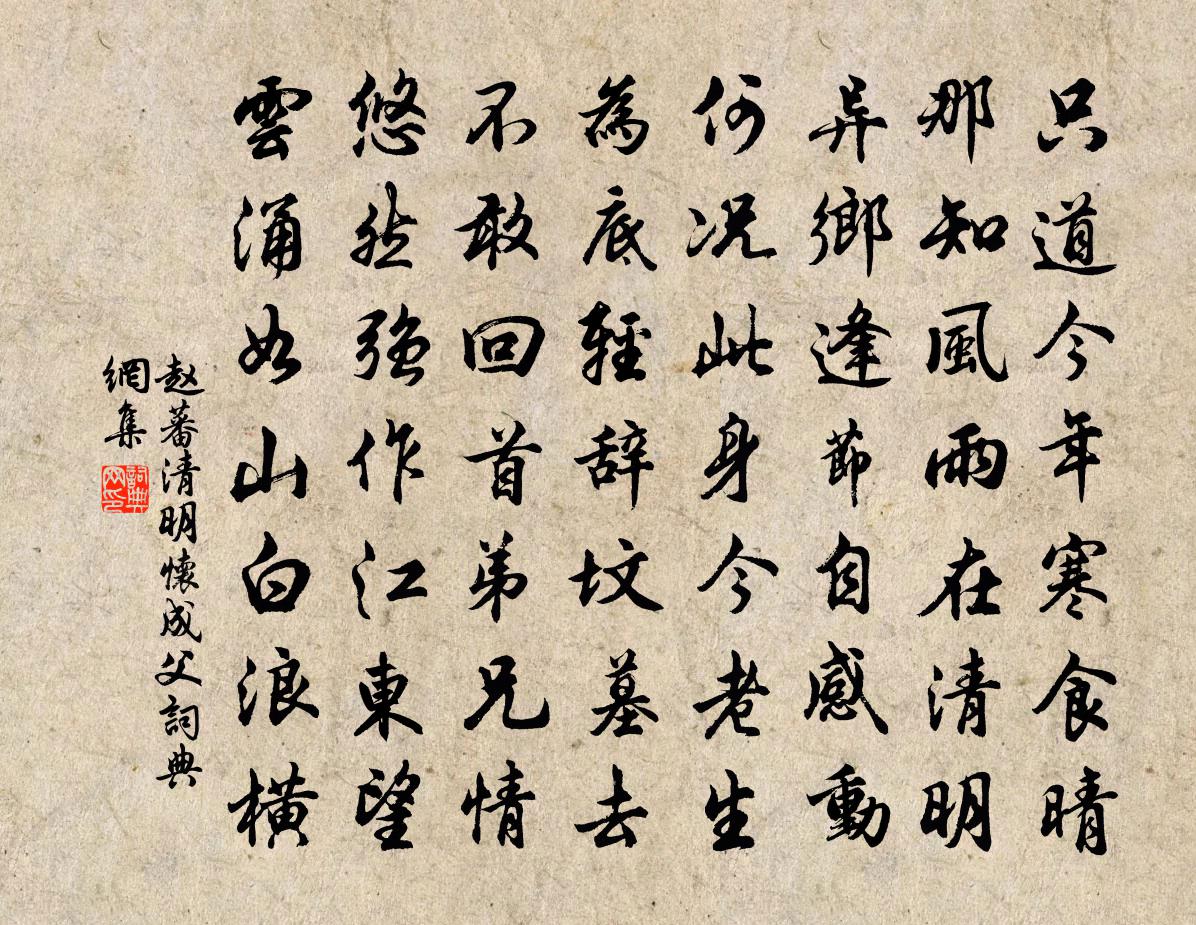 只道今年寒食晴
那知風雨在清明
异鄉逢節自感動
何况此身今老生
為底輕辞坟墓去
不敢回首弟兄情
悠然强作江東望
雲涌如山白浪横
赵蕃清明懷成父詞典
網集
詞典
网印